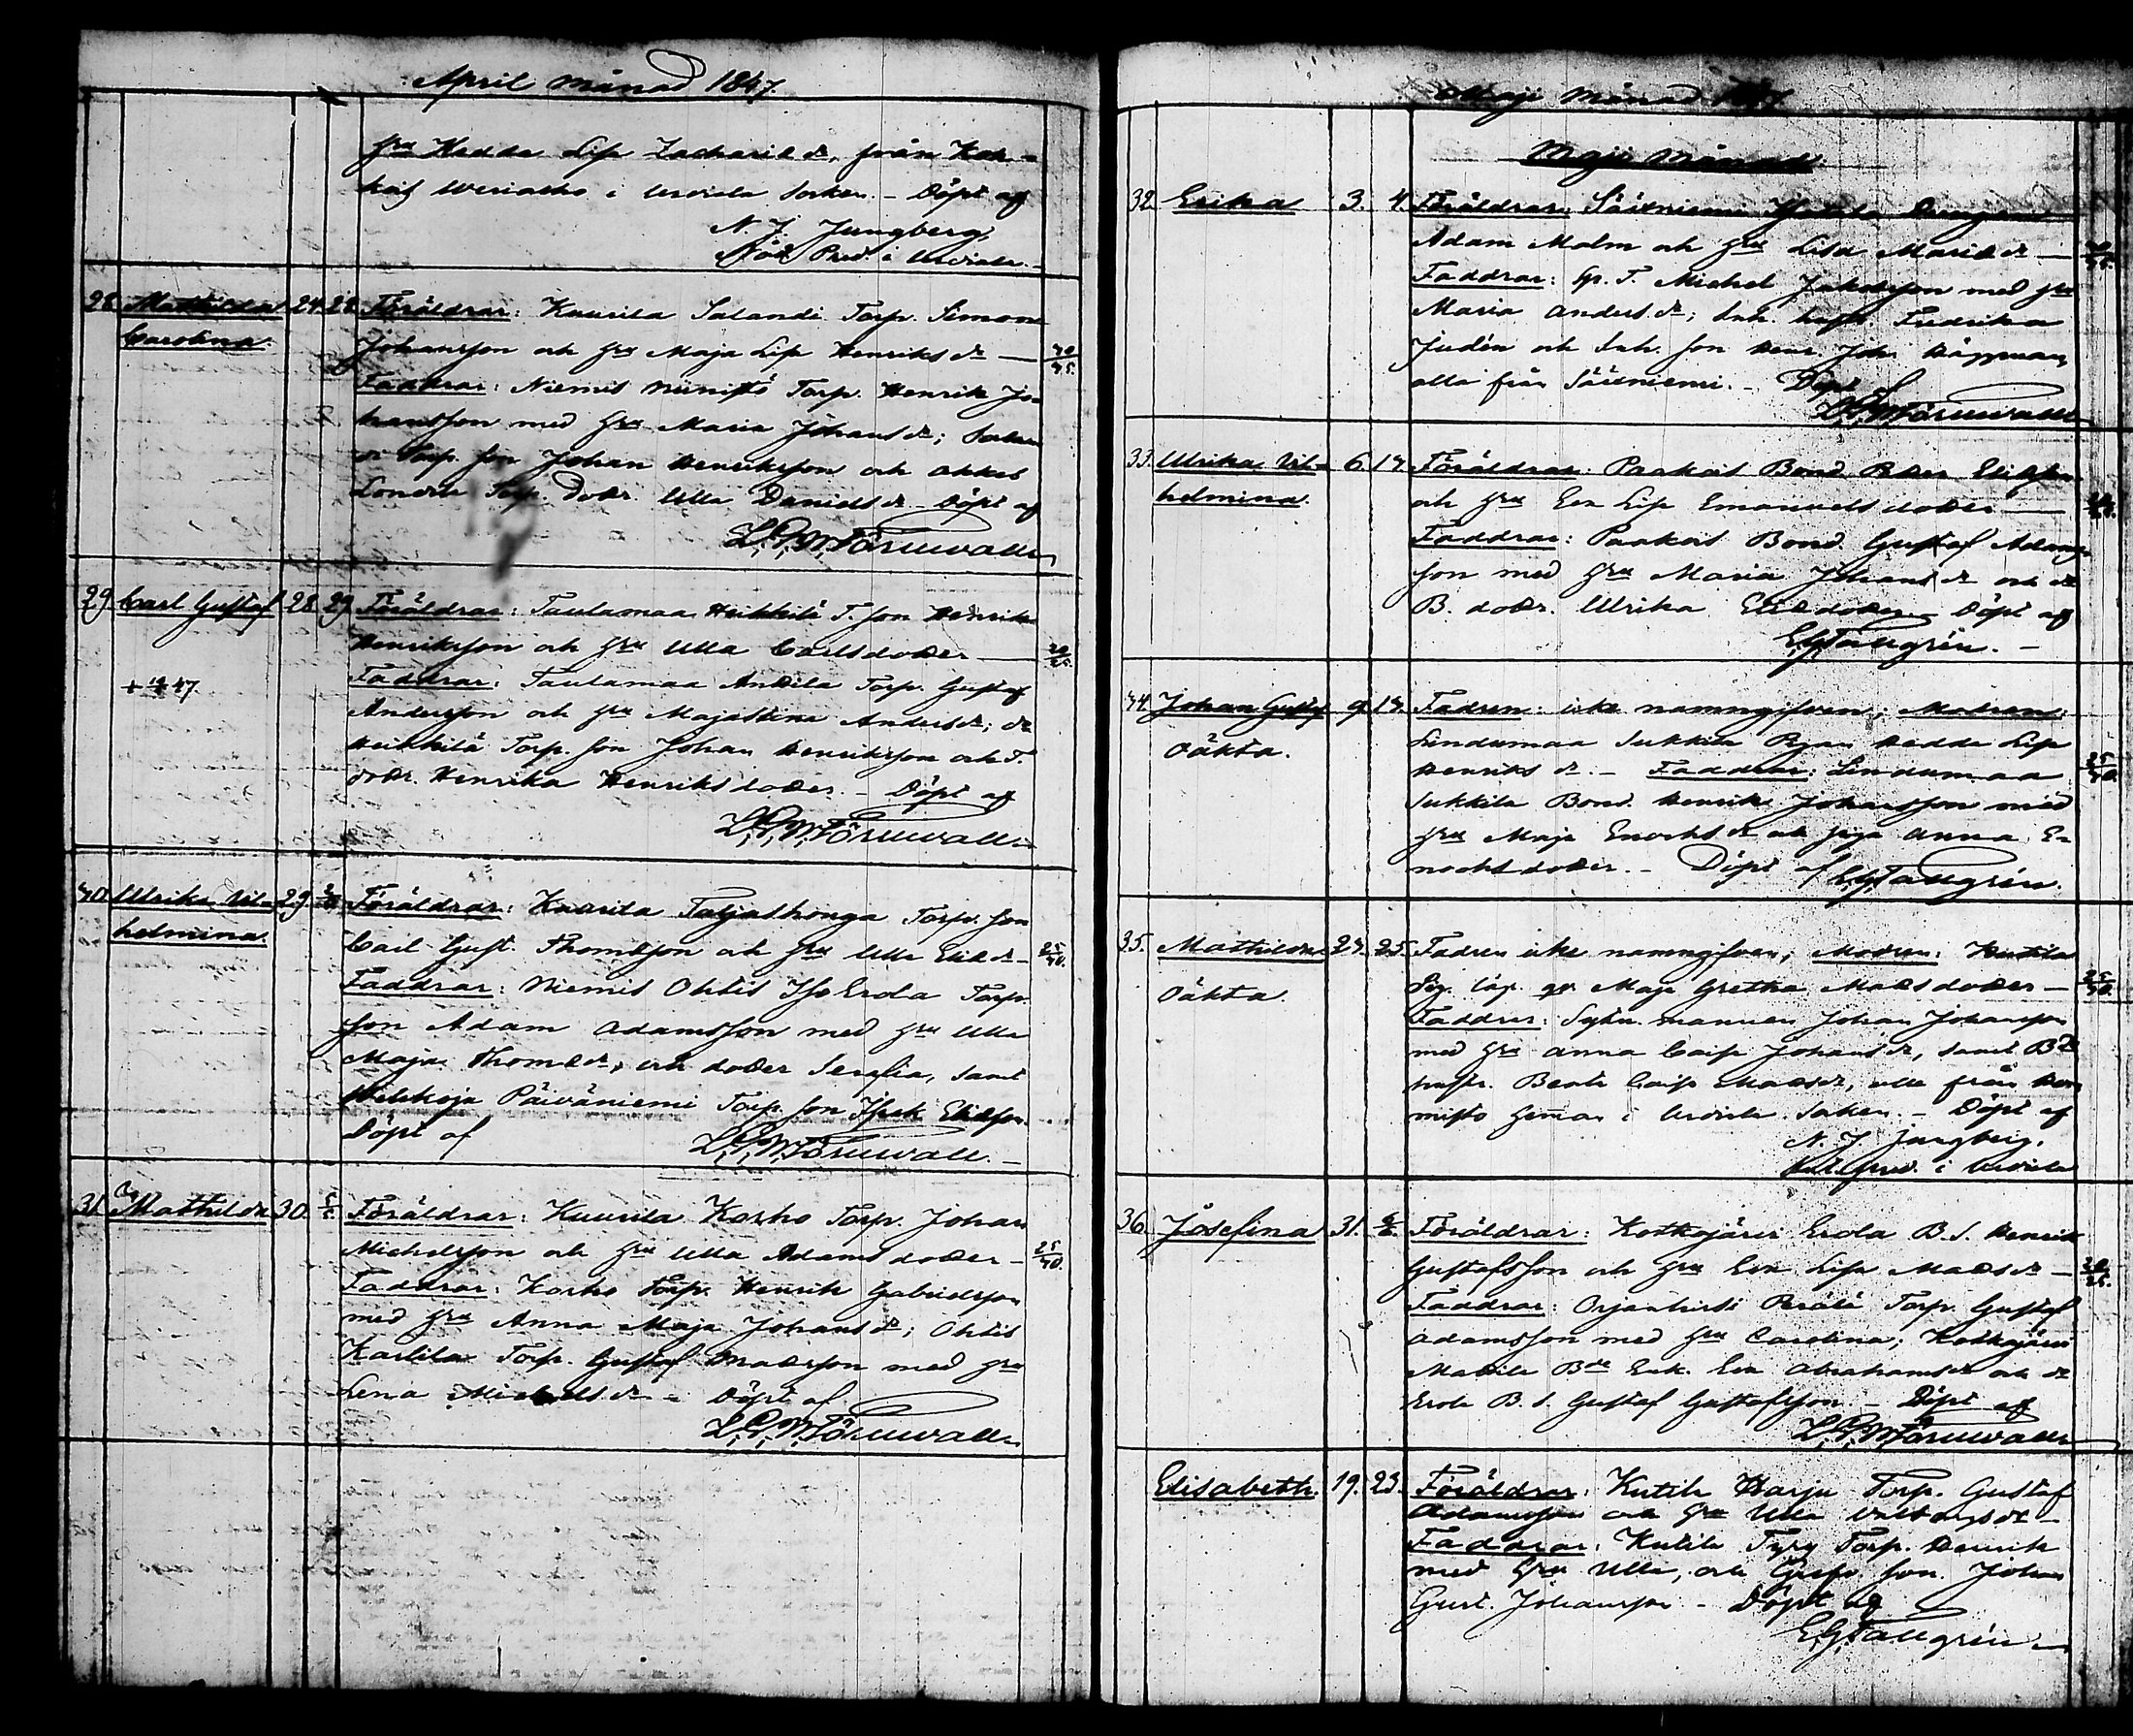 April månad 1847.
hru Hedda Lis. Zachariæ dr, från
i Urdiala Socken. – Döpt af
N. J. Jungberg,
Pred. i Urdiala.
28 Mathilda 24. 28. Föräldrar: Kuurila Salandi Torp. Simon
Carolina. Johansson och hru Maja Lis. Henriks dr — 30/35.
Faddrar: Niemis Niinistö Torp. Henrik Jo-
hansson med hru Maria Johans dr;
Torp. son Johan Henriksson och
Torp. dotter Ulla Daniels dr. Döpt af
L.P.W. Törnwall.
29. Carl Gustaf 28. 29. Föräldrar: Taulamaa Heikkilä T. son Henrik
Henriksson och hru Ulla Carlsdotter — 20/25.
Faddrar: Taulamaa Anttila Torp. Gustaf
47. Andersson och hru Majastina Anders dr; dr
Heikkilä Torp. son Johan Henriksson och T.
dotr. Henrika Henriksdotter. – Döpt af
L.P.W. Törnwall.
30. Ulrika Vil- 29. Föräldrar: Kuurila Torp. son
helmina. Carl Gust. Thomasson och hru Ulla Eliæ dr – 25/30.
Faddrar: Niemis Ohtis Iso Erola Torp.
son Adam Adamsson med hru Ulla
Maja Thomæ dr, och dotter Serafia, samt
Päiväniemi Torp. son Isak Eliæson.
Döpt af L.P.W. Törnwall. –
31. Mathilda 30. Föräldrar: Kuurila Korho Torp. Johan
Michelsson och hru Ulla Adamsdotter – 25/30.
Faddrar: Korho Torp. Henrik Gabrielsson
med hru Anna Maja Johans dr; Ohtis
Karlila Torp. Gustaf Mattsson med hru
Lena Michels dr – Döpt af
L.P.W. Törnwall.
Maji månad 1847
Maji Månad.
32. Erika 3. 4. Föräldrar: Sääxniemi
Adam Malm och hru Lisa Mariæ dr —
Faddrar: Sp. T. Michel Jakobsson med hru
Maria Anders dr; Inh. hustr. Fredrika
Judén och Inh. son Henr. Joh. Häggman,
alla från Sääxniemi. – Döpt af
L.P.W. Törnwall
33. Ulrika Vil- 6. 13. Föräldrar: Paakois Bond.
helmina. och hru Eva Lis. Emanuelsdotter —
Faddrar: Paakois Bond. Gustaf Adams-
son med hru Maria Johans dr och dr
B. dotr. Ulrika Eliædotter – Döpt af
E.G. Tallgrén. –
34. Johan Gustaf 9. 13. Fadren: icke namngifven; Modren:
Oäkta. Lindumaa Sukkila Pigan Hedda Lis.
Henriks dr. – Faddrar: Lindumaa 25/30.
Sukkila Bond. Henrik Johansson med
hru Maja Enochs dr och piga Anna E-
nochsdotter. – Döpt af E.G. Tallgrén.
35. Mathilda 23. 25. Fadren icke namngifven; Modren: Kutila
Oäkta. Maja Gretha Matsdotter – 25/30.
Faddrar: Sytn. mannen Johan Johansson
med hru Anna Cajs. Johans dr, samt Bde
hustr. Beata Cajs. Mats dr, alla från
i Urdiala Socken. – Döpt af
N. J. Jungberg.
pred. i Urdiala
36. Josefina 31. Föräldrar: Kotkajärvi Erola B. S. Henrik
Gustafsson och hru Eva Lisa Mats dr –
Faddrar: Orjanhirsi Perälä Torp. Gustaf
Adamsson med hru Carolina; Kotkajärvi
Mattila Bde Enk. Eva Abrahams dr och dr
Erola B. S. Gustaf Gustafsson – Döpt af
L.P.W. Törnwall
Elisabeth. 19. 23. Föräldrar: Kutila Harju Torp. Gustaf
Adamsson och hru Ulla
Faddrar: Kutila Tyry Torp. Henrik
med hru Ulla, och Torp. son Johan
Gust. Johansson – Döpt af
E.G. Tallgrén –